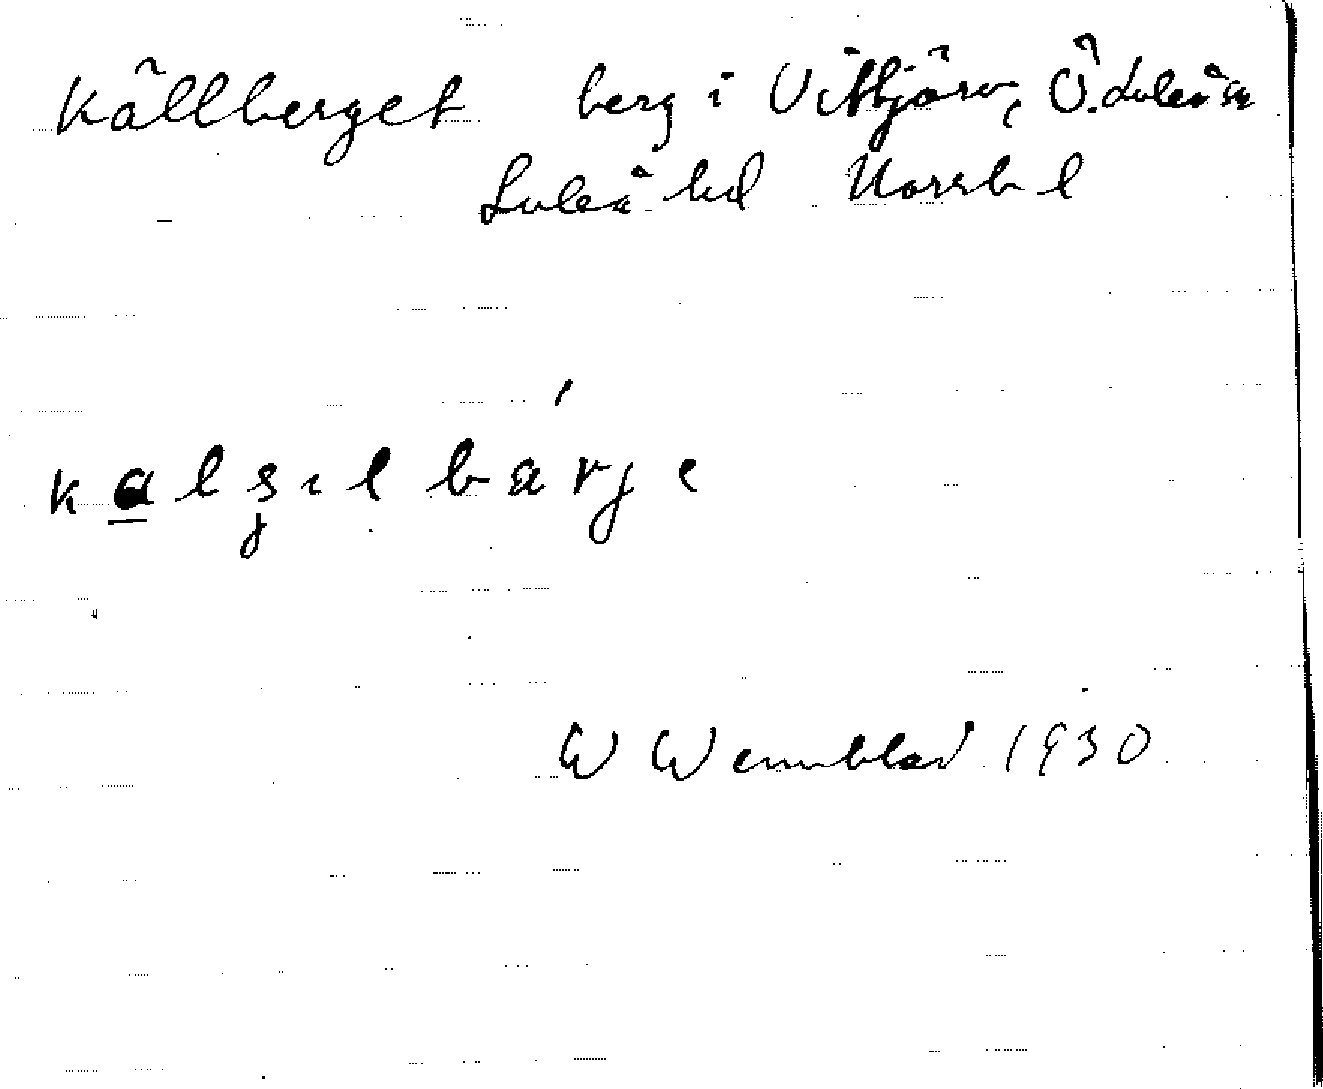 Källberget berg i Vittjärv, Ö. Luleå sn
Luleå hd Norrb l
W Wennblad 1930